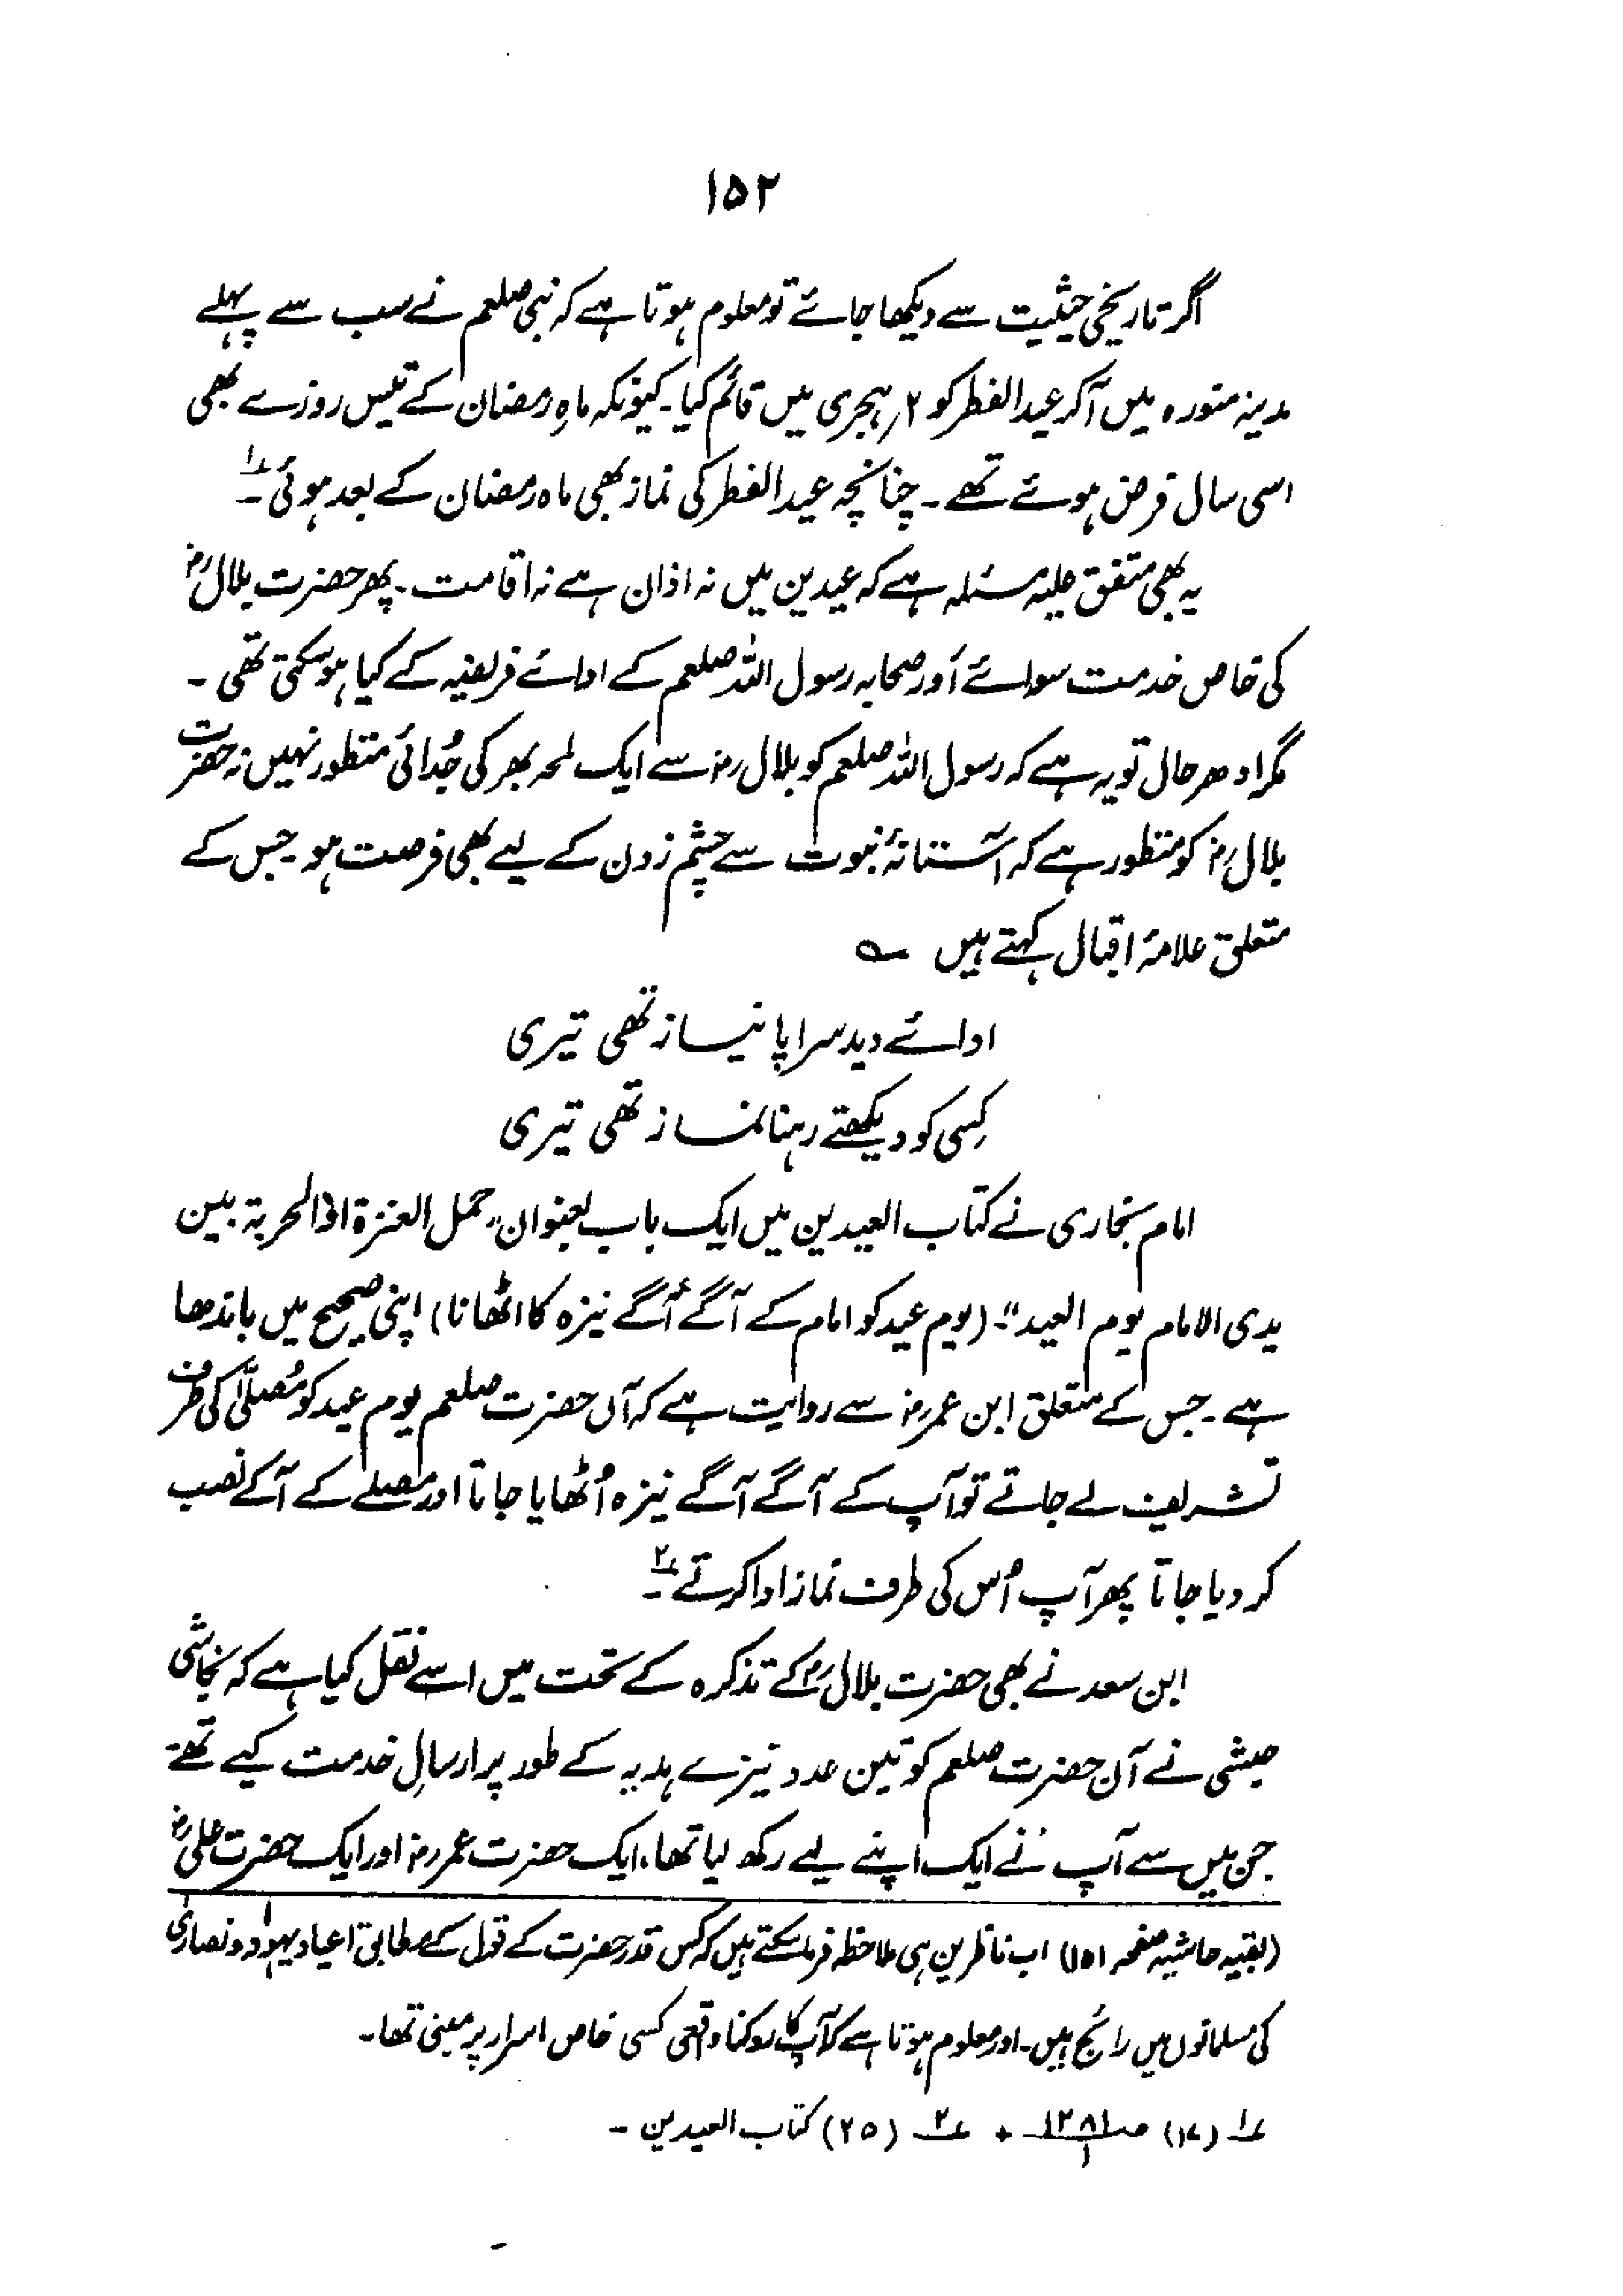 ۱۵۲
اگر تاریخی حیثیت سے دیکھا جائے تو معلوم ہوتا ہے کہ نبی صلعم نے سب سے پہلے
مدینہ منورہ میں آکر عید الفطر کو ۲ ہجری میں قائم کیا۔ کیونکہ ماہِ رمضان کے تیس روزے بھی
اسی سال فرض ہوئے تھے۔ چنانچہ عید الفطر کی نماز بھی ماہ رمضان کے بعد ہوئی ۱؎۔
یہ بھی متفق علیہ مسئلہ ہے کہ عیدین میں نہ اذان ہے نہ اقامت۔ پھر حضرت بلال رضؓ
کی خاص خدمت سوائے اَور صحابہ رسول اللہ صلعم کے ادائے فریضہ کے کیا ہو سکتی تھی۔
مگر ادھر حال تو یہ ہے کہ رسول اللہ صلعم کو بلال رضؓ سے ایک لمحہ بھر کی جُدائی منظور نہیں نہ حضرت
بلال رضؓ کو منظور ہے کہ آستانۂ نبوت سے چشم زدن کے لیے بھی فرصت ہو۔ جس کے
متعلق علامۂ اقبال کہتے ہیں ؎
ادائے دید سراپا نیاز تھی تیری
کِسی کو دیکھتے رہنا نماز تھی تیری
امام بخاری نے کتاب العیدین میں ایک باب بعنوان "حمل العنزۃ اوالحربۃ بین
یدی الامام یوم العید"۔ (یوم عید کو امام کے آگے آگے نیزہ کا اٹھانا) اپنی صحیح میں باندھا
ہے۔ جس کے متعلق ابن عمر رضؓ سے روایت ہے کہ آں حضرت صلعم یوم عید کو مُصلّٰی کی طرف
تشریف لے جاتے تو آپ کے آگے آگے نیزہ اُٹھایا جاتا اور مصلے کے آگے نصب
کر دیا جاتا پھر آپ اُس کی طرف نماز ادا کرتے ۲؎۔
ابن سعد نے بھی حضرت بلال رضؓ کے تذکرہ کے تحت میں اسے نقل کیا ہے کہ نجاشی
حبشی نے آن حضرت صلعم کو تین عدد نیزے ہدیہ کے طور پر ارسالِ خدمت کیے تھے۔
جن میں سے آپ نے ایک اپنے لیے رکھ لیا تھا، ایک حضرت عمر رضؓ اور ایک حضرت علی رضؓ
(بقیہ حاشیہ صفحہ ۱۵۱) اب ناظرین ہی ملاحظہ فرما سکتے ہیں کہ کس قدر حضرت کے قول کے مطابق اعیاد یہود و نصاریٰ
کی مسلمانوں میں رائج ہیں۔ اور معلوم ہوتا ہے کہ آپ کا روکنا واقعی کسی خاص اسرار پر مبنی تھا۔
۱؎ (۱۷) صـ ۱۲۸۱/۱ + ۲؎ (۲۵) کتاب العیدین۔